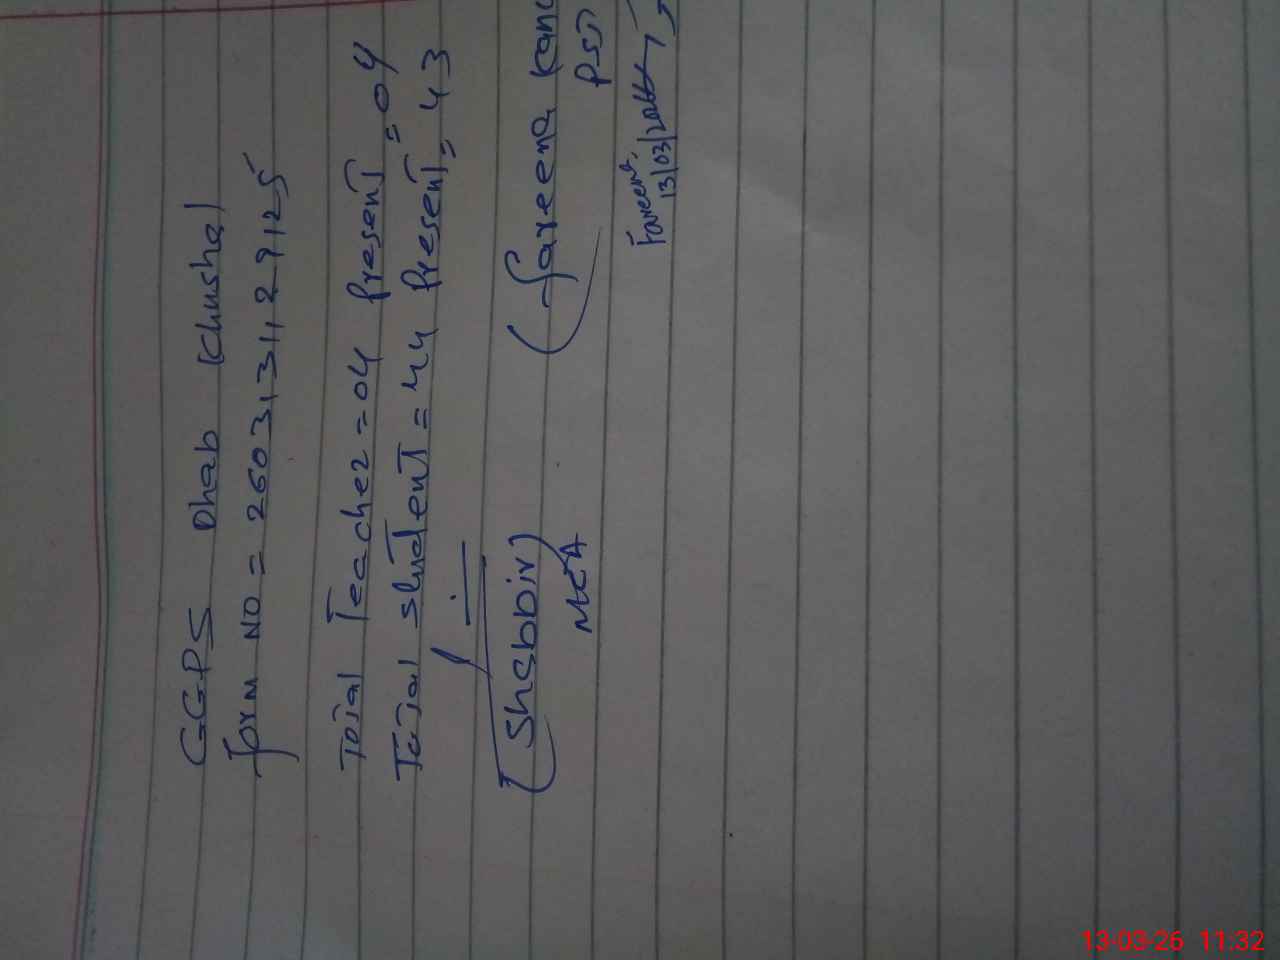 GGPS Dhab Khushal
form NO = 26031311 27125
Total Teacher = 04 Present = 04
Total student = 44 Present = 43
(Shabbir) (fareena Kanw
MEA PST
Fareena
13/03/2026
13-03-26 11:32